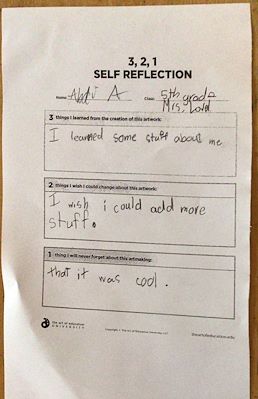 3, 2, 1
SELF REFLECTION
Name: A Class: 5th grade
Mrs. Lord
3 things I learned from the creation of this artwork:
I learned some stuff about me
2 things I wish I could change about this artwork:
I wish i could add more
stuff.
1 thing I will never forget about this artmaking:
that it was cool.
the art of education
UNIVERSITY
Copyright © The Art of Education University, LLC
theartofeducation.edu